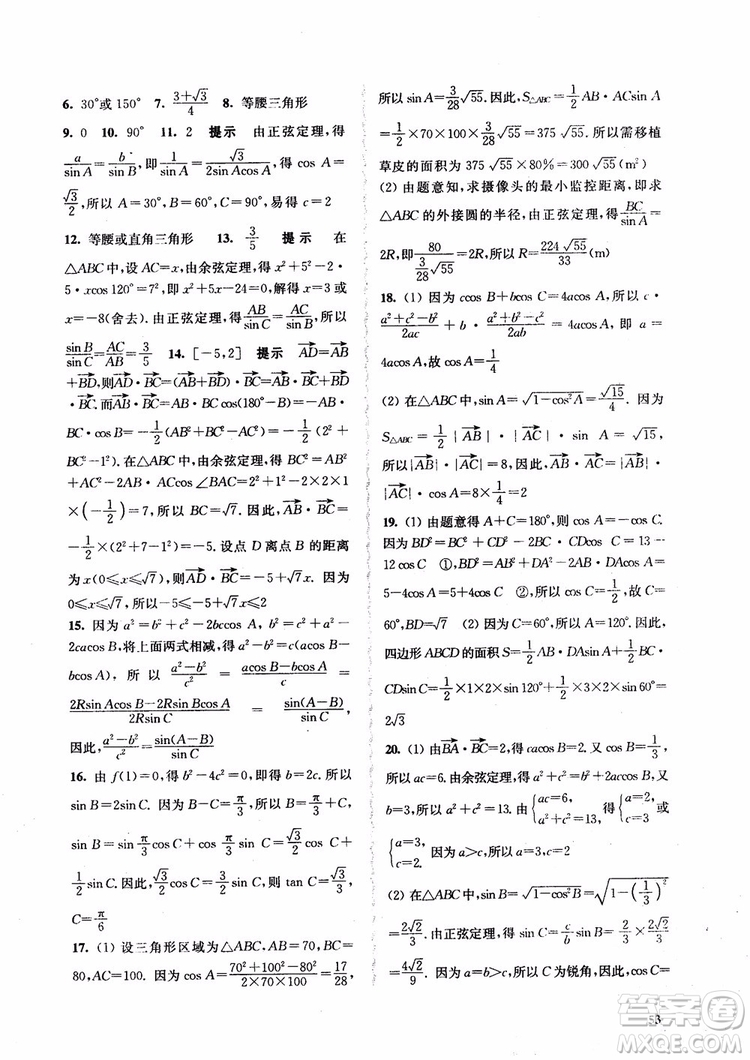 6. 30°或 150°　7. (3+√3)/4　8. 等腰三角形
9. 0　10. 90°　11. 2　提示　由正弦定理，得
a/sin A=b/sin B，即 1/sin A=√3/(2sin Acos A)，得 cos A=
√3/2，所以 A=30°，B=60°，C=90°，易得 c=2
12. 等腰或直角三角形　13. 3/5　提示　在
△ABC 中，设 AC=x，由余弦定理，得 x²+5²-2
·5·xcos 120°=7²，即 x²+5x-24=0，得 x=3 或
x=-8(舍去)。由正弦定理，得 AB/sin C=AC/sin B，所以
sin B/sin C=AC/AB=3/5　14. [-5,2]　提示　AD→=AB→
+BD→，则AD→·BC→=(AB→+BD→)·BC→=AB→·BC→+BD→
·BC→. 而AB→·BC→=AB·BC·cos(180°-B)=-AB·
BC·cos B=-1/2(AB²+BC²-AC²)=-1/2(2²+
BC²-1²). 在△ABC 中，由余弦定理，得 BC²=AB²
+AC²-2AB·ACcos∠BAC=2²+1²-2×2×1
×(-1/2)=7，所以 BC=√7. 因此，AB→·BC→=
-1/2×(2²+7-1²)=-5. 设点 D 离点 B 的距离
为 x(0≤x≤√7)，则AD→·BC→=-5+√7x. 因为
0≤x≤√7，所以-5≤-5+√7x≤2
15. 因为 a²=b²+c²-2bccos A，b²=a²+c²-
2cacos B，将上面两式相减，得 a²-b²=c(acos B-
bcos A)，所以 (a²-b²)/c²=(acos B-bcos A)/c=
(2Rsin Acos B-2Rsin Bcos A)/(2Rsin C)=sin(A-B)/sin C.
因此，(a²-b²)/c²=sin(A-B)/sin C
16. 由 f(1)=0，得 b²-4c²=0，即得 b=2c，所以
sin B=2sin C. 因为 B-C=π/3，所以 sin(C+π/3)=
2sin C. 所以 sin C·cos π/3+cos C·sin π/3=
2sin C，即 1/2 sin C+√3/2 cos C=
2sin C. 因此，√3/2 cos C=3/2 sin C，则 tan C=√3/3，
C=π/6
17. (1) 设三角形区域为△ABC，AB=70，BC=
80，AC=100. 因为 cos A=(70²+100²-80²)/(2×70×100)=17/28，
所以 sin A=3/28√55. 因此，S△ABC=1/2 AB·ACsin A
=1/2×70×100×3/28√55=375√55. 所以需移植
草皮的面积为 375√55×80%=300√55(m²)
(2) 由题意知，求摄像头的最小监控距离，即求
△ABC 的外接圆的半径，由正弦定理，得 BC/sin A=
2R，即 80/(3/28√55)=2R，所以 R=224√55/33(m)
18. (1) 因为 ccos B+bcos C=4acos A，所以 c·
(a²+c²-b²)/2ac+b·(a²+b²-c²)/2ab=4acos A，即 a=
4acos A，故 cos A=1/4
(2) 在△ABC 中，sin A=√(1-cos²A)=√15/4. 因为
S△ABC=1/2|AB→|·|AC→|·sin A=√15，
所以|AB→|·|AC→|=8. 因此，AB→·AC→=|AB→|·
|AC→|·cos A=8×1/4=2
19. (1) 由题意得 A+C=180°，则 cos A=-cos C.
因为 BD²=BC²+CD²-2BC·CDcos C=13-
12cos C　①，BD²=AB²+DA²-2AB·DAcos A=
5-4cos A=5+4cos C　②，所以 cos C=1/2，故 C=
60°，BD=√7　(2) 因为 C=60°，所以 A=120°. 因此，
四边形 ABCD 的面积 S=1/2 AB·DAsin A+1/2 BC·
CDsin C=1/2×1×2×sin 120°+1/2×3×2×sin 60°=
2√3
20. (1) 由BA→·BC→=2，得 cacos B=2. 又 cos B=1/3，
故 ac=6. 由余弦定理，得 a²+c²=b²+2accos B. 又
b=3，所以 a²+c²=13. 由{ac=6, a²+c²=13，得{a=2, c=3 或
{a=3, c=2. 因为 a>c，所以 a=3，c=2
(2) 在△ABC 中，sin B=√(1-cos²B)=√(1-(1/3)²)
=2√2/3. 由正弦定理，得 sin C=c/b sin B=2/3×2√2/3
=4√2/9. 因为 a=b>c，所以 C 为锐角，cos C=
53
答案圈
MXQE.COM